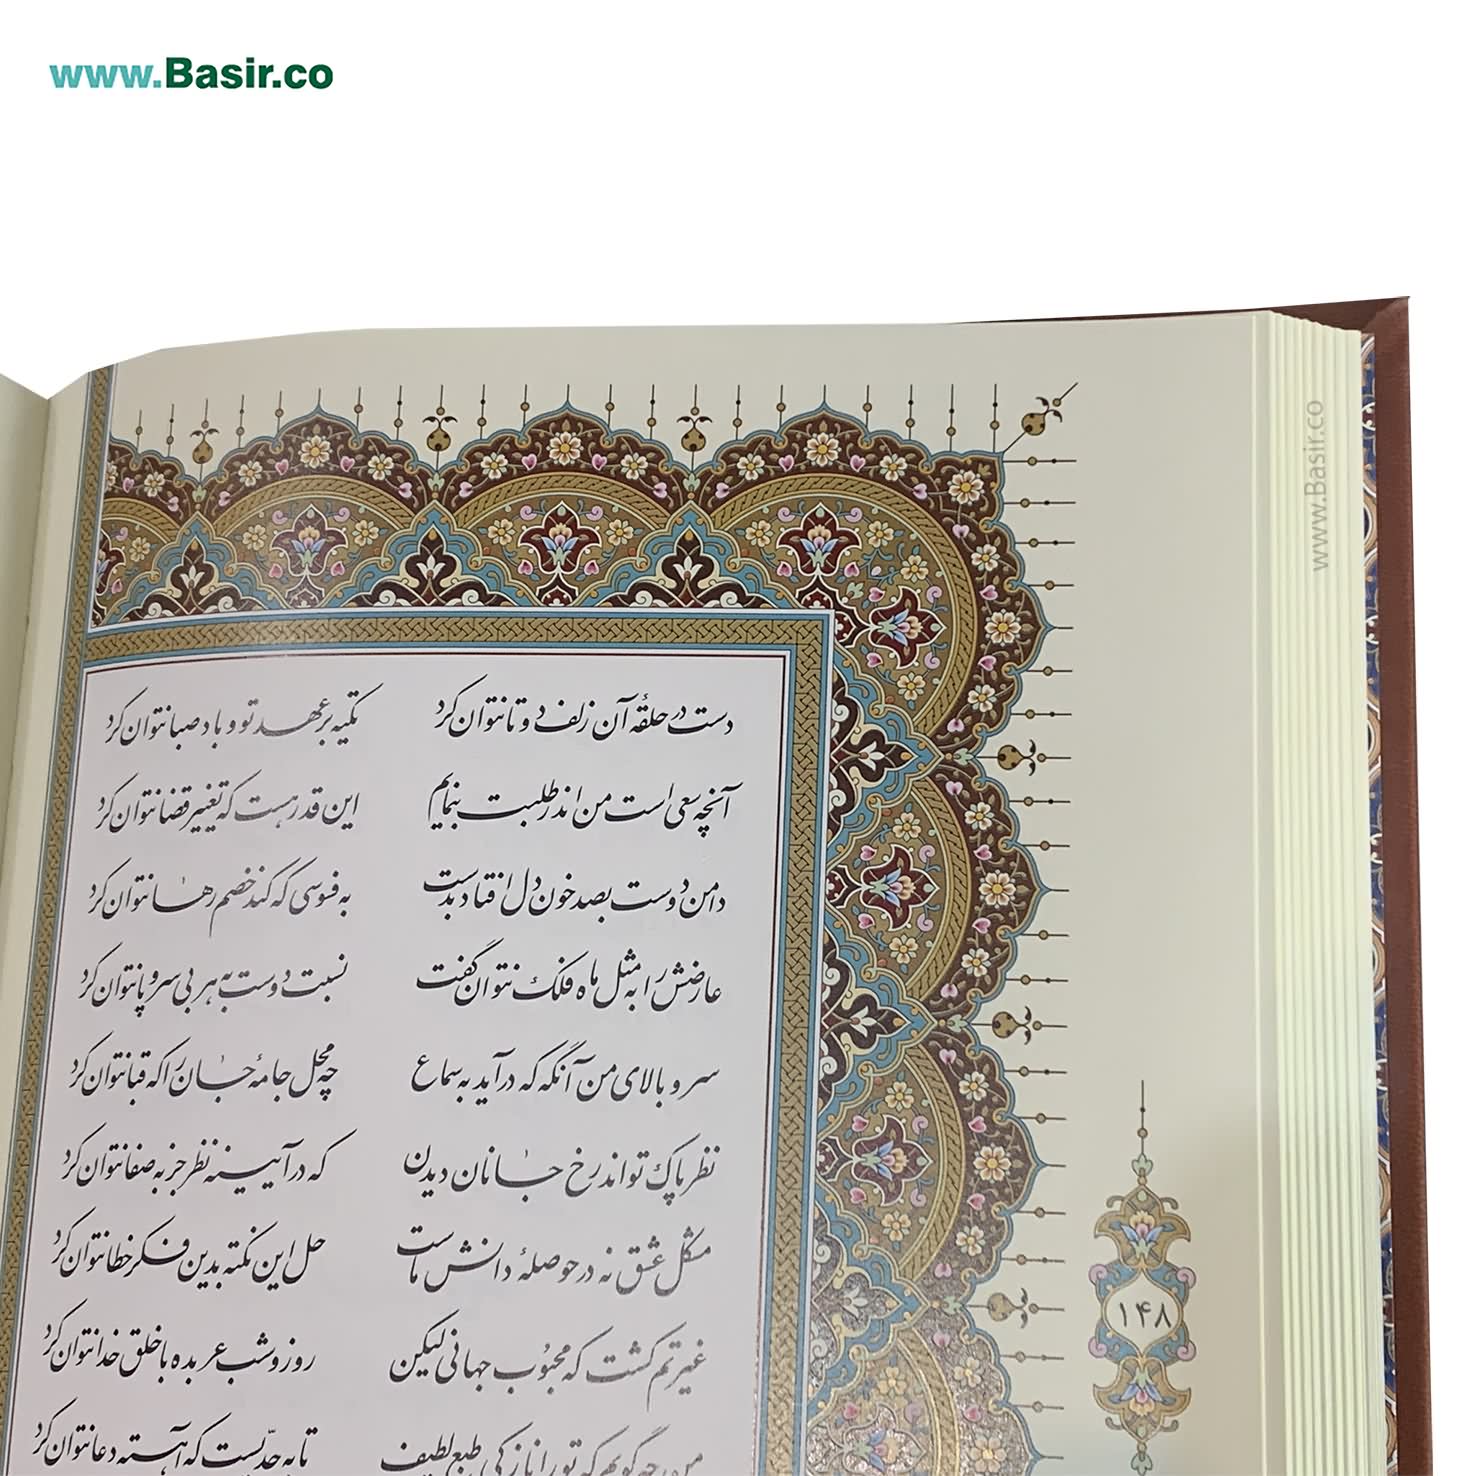 www.Basir.co
دست در حلقهٔ آن زلف دوتا نتوان کرد تکیه بر عهد تو و باد صبا نتوان کرد
آنچه سعی است من اندر طلبت بنمایم این قدر هست که تغییر قضا نتوان کرد
دامن دوست بصد خون دل افتاد بدست به فسوسی که کند خصم رها نتوان کرد
عارضش را به مثل ماه فلک نتوان گفت نسبت دوست به هر بی سر و پا نتوان کرد
سرو بالای من آنگه که درآید به سماع چه محل جامهٔ جان را که قبا نتوان کرد
نظر پاک تواند رخ جانان دیدن که در آیینه نظر جز به صفا نتوان کرد
مشکل عشق نه در حوصلهٔ دانش ماست حل این نکته بدین فکر خطا نتوان کرد
غیرتم کشت که محبوب جهانی لیکن روز و شب عربده با خلق خدا نتوان کرد
من چه گویم که تو را نازکی طبع لطیف تا به حدّیست که آهسته دعا نتوان کرد
۱۴۸
www.Basir.co